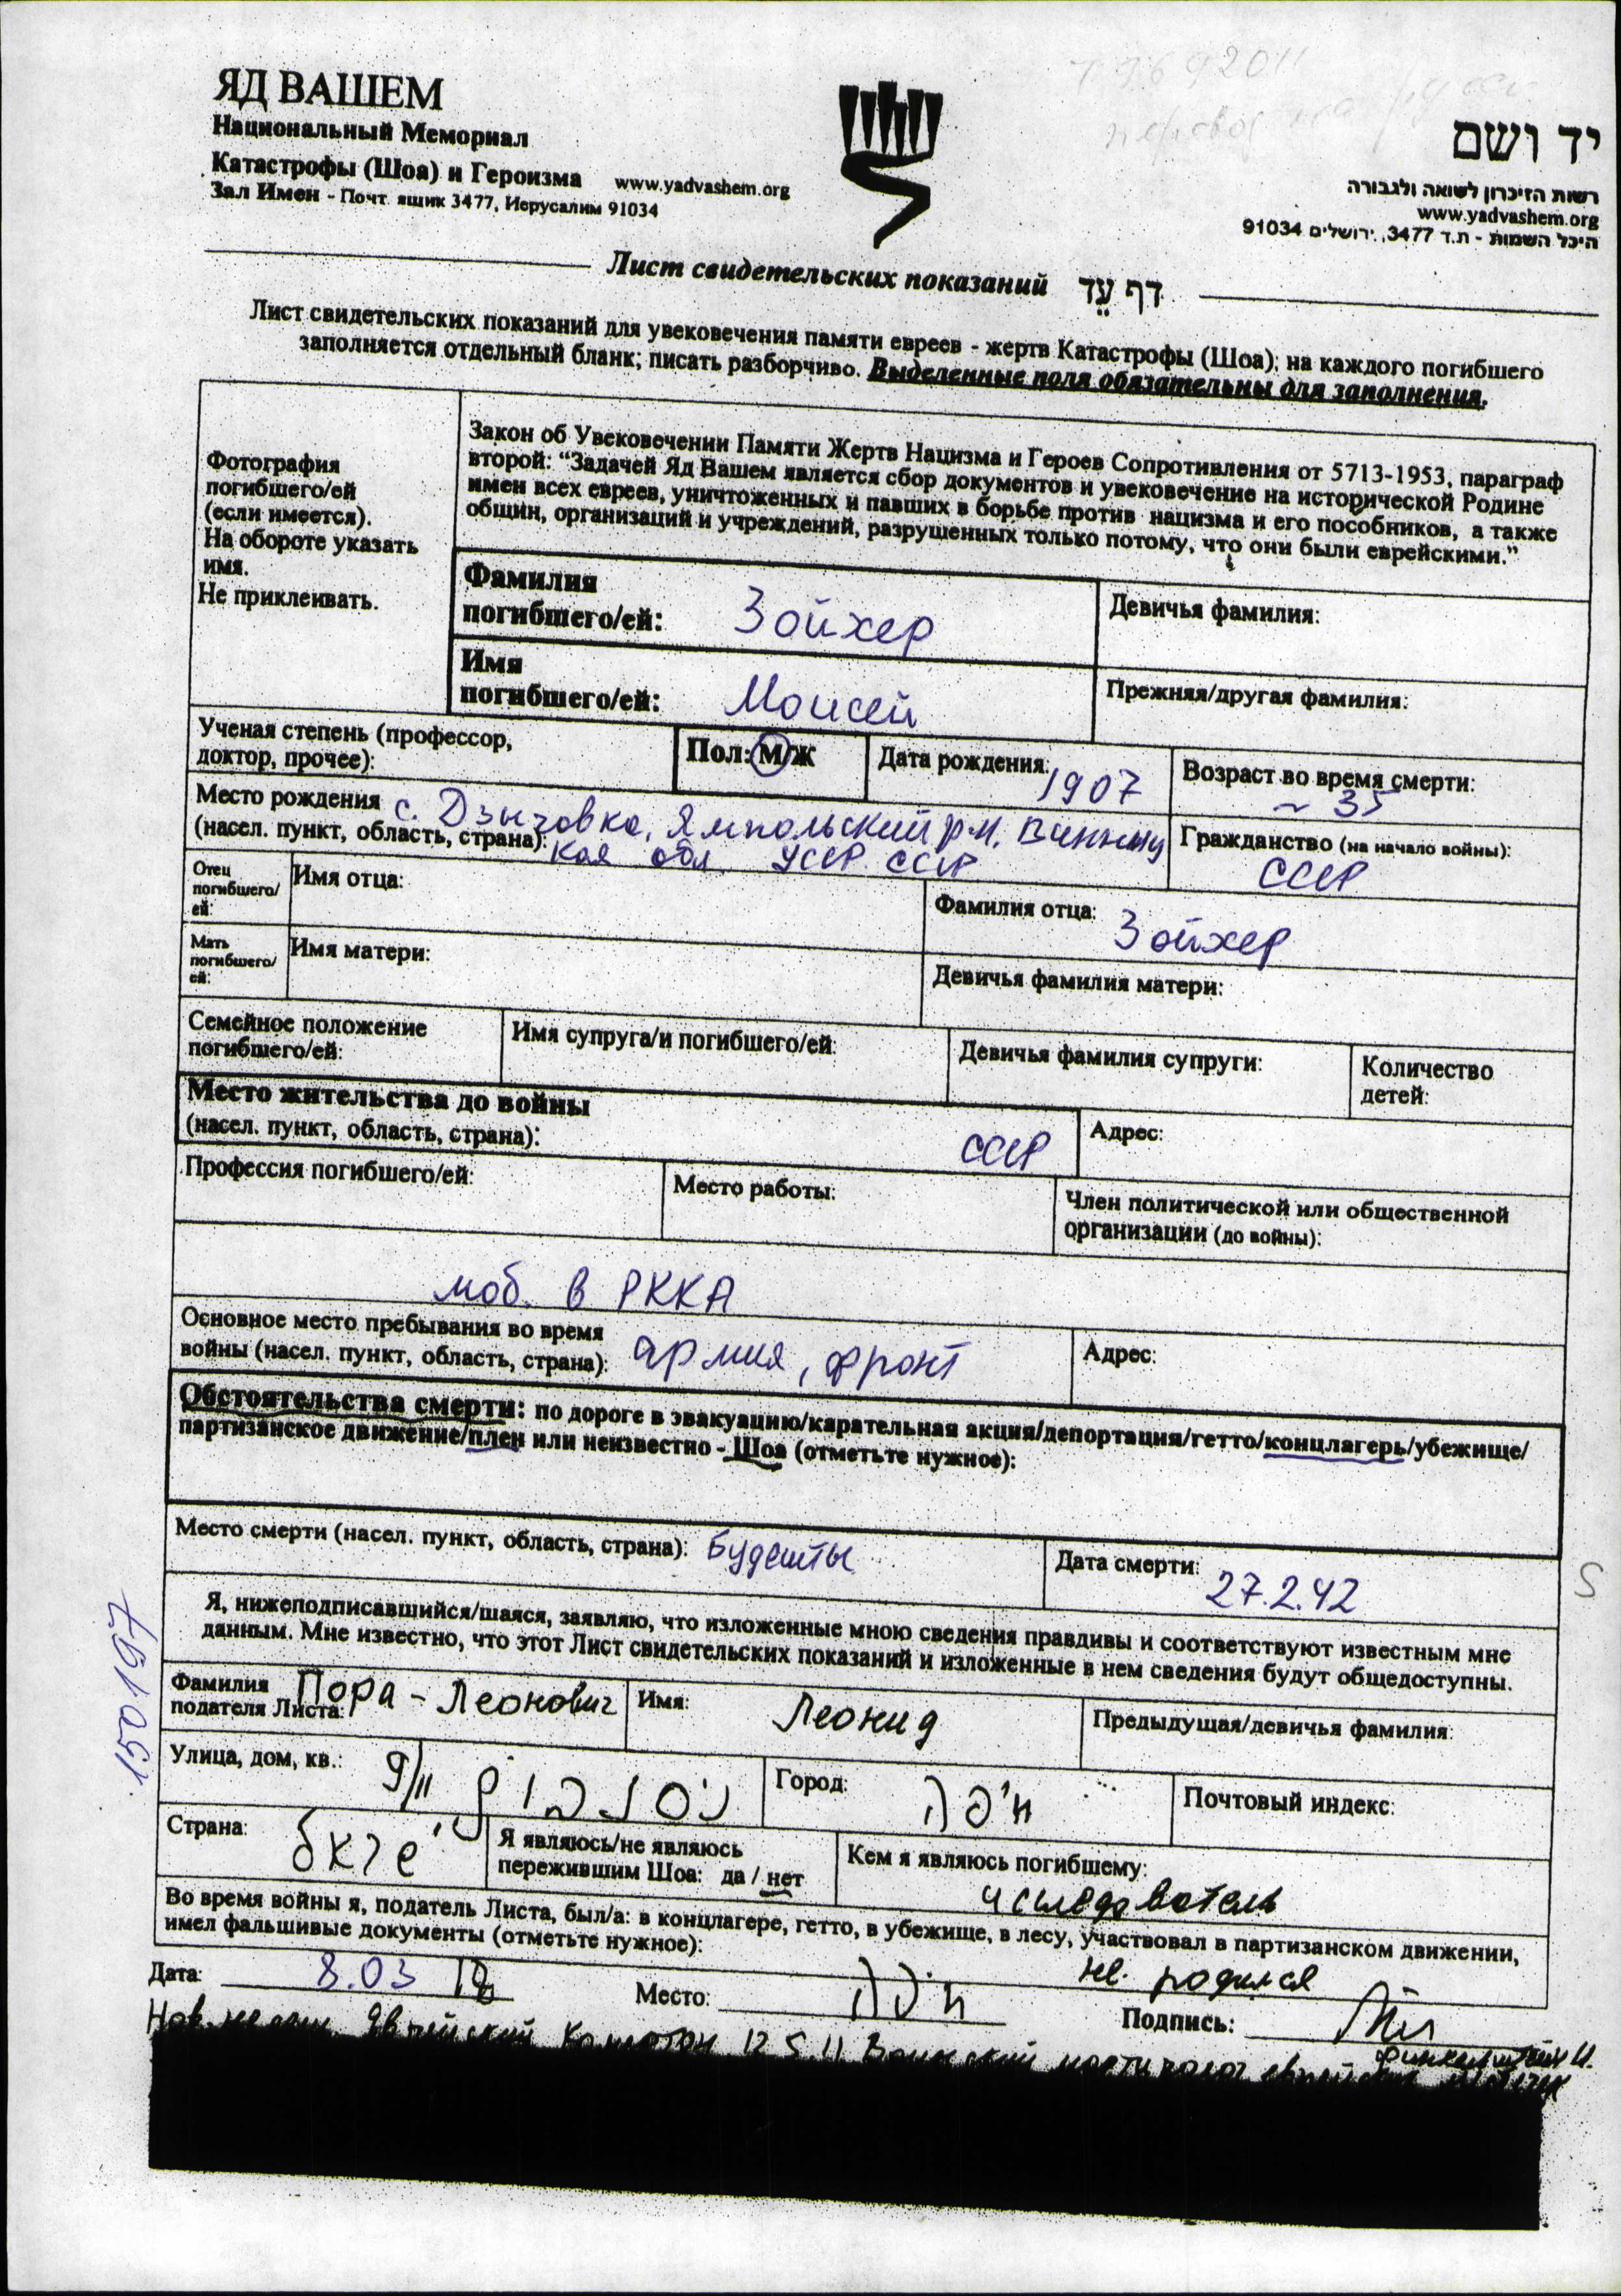 ЯД ВАШЕМ
Национальный Мемориал
Катастрофы (Шоа) и Героизма www.yadvashem.org
Зал Имен - Почт. ящик 3477, Иерусалим 91034
יד ושם
רשות הזיכרון לשואה ולגבורה
www.yadvashem.org
היכל השמות - ת.ד 3477, ירושלים 91034
Лист свидетельских показаний דף עֵד
Лист свидетельских показаний для увековечения памяти евреев - жертв Катастрофы (Шоа); на каждого погибшего
заполняется отдельный бланк; писать разборчиво. Выделенные поля обязательны для заполнения.
Фотография
погибшего/ей
(если имеется).
На обороте указать
имя.
Не приклеивать.
Закон об Увековечении Памяти Жертв Нацизма и Героев Сопротивления от 5713-1953, параграф
второй: “Задачей Яд Вашем является сбор документов и увековечение на исторической Родине
имен всех евреев, уничтоженных и павших в борьбе против нацизма и его пособников, а также
общин, организаций и учреждений, разрушенных только потому, что они были еврейскими.”
Фамилия
погибшего/ей: Зойхер
Девичья фамилия:
Имя
погибшего/ей: Моисей
Прежняя/другая фамилия:
Ученая степень (профессор,
доктор, прочее):
Пол: М/Ж
Дата рождения: 1907
Возраст во время смерти:
~ 35
Место рождения с. Дзыговка, Ямпольский р-н, Винниц
(насел. пункт, область, страна): кая обл. УССР СССР
Гражданство (на начало войны):
СССР
Отец
погибшего/
ей:
Имя отца:
Фамилия отца: Зойхер
Мать
погибшего/
ей:
Имя матери:
Девичья фамилия матери:
Семейное положение
погибшего/ей:
Имя супруга/и погибшего/ей:
Девичья фамилия супруги:
Количество
детей:
Место жительства до войны
(насел. пункт, область, страна): СССР
Адрес:
Профессия погибшего/ей:
Место работы:
Член политической или общественной
организации (до войны):
моб. в РККА
Основное место пребывания во время
войны (насел. пункт, область, страна): армия, фронт
Адрес:
Обстоятельства смерти: по дороге в эвакуацию/карательная акция/депортация/гетто/концлагерь/убежище/
партизанское движение/плен или неизвестно - Шоа (отметьте нужное):
Место смерти (насел. пункт, область, страна): Будешты
Дата смерти: 27.2.42
Я, нижеподписавшийся/шаяся, заявляю, что изложенные мною сведения правдивы и соответствуют известным мне
данным. Мне известно, что этот Лист свидетельских показаний и изложенные в нем сведения будут общедоступны.
Фамилия
подателя Листа: Пора-Леонович
Имя: Леонид
Предыдущая/девичья фамилия:
Улица, дом, кв.: 9/11
Город: חיפה
Почтовый индекс:
Страна:
Я являюсь/не являюсь
пережившим Шоа: да / нет
Кем я являюсь погибшему:
исследователь
Во время войны я, податель Листа, был/а: в концлагере, гетто, в убежище, в лесу, участвовал в партизанском движении,
имел фальшивые документы (отметьте нужное):
не родился
Дата: 8.03
Место: חיפה
Подпись:
150197